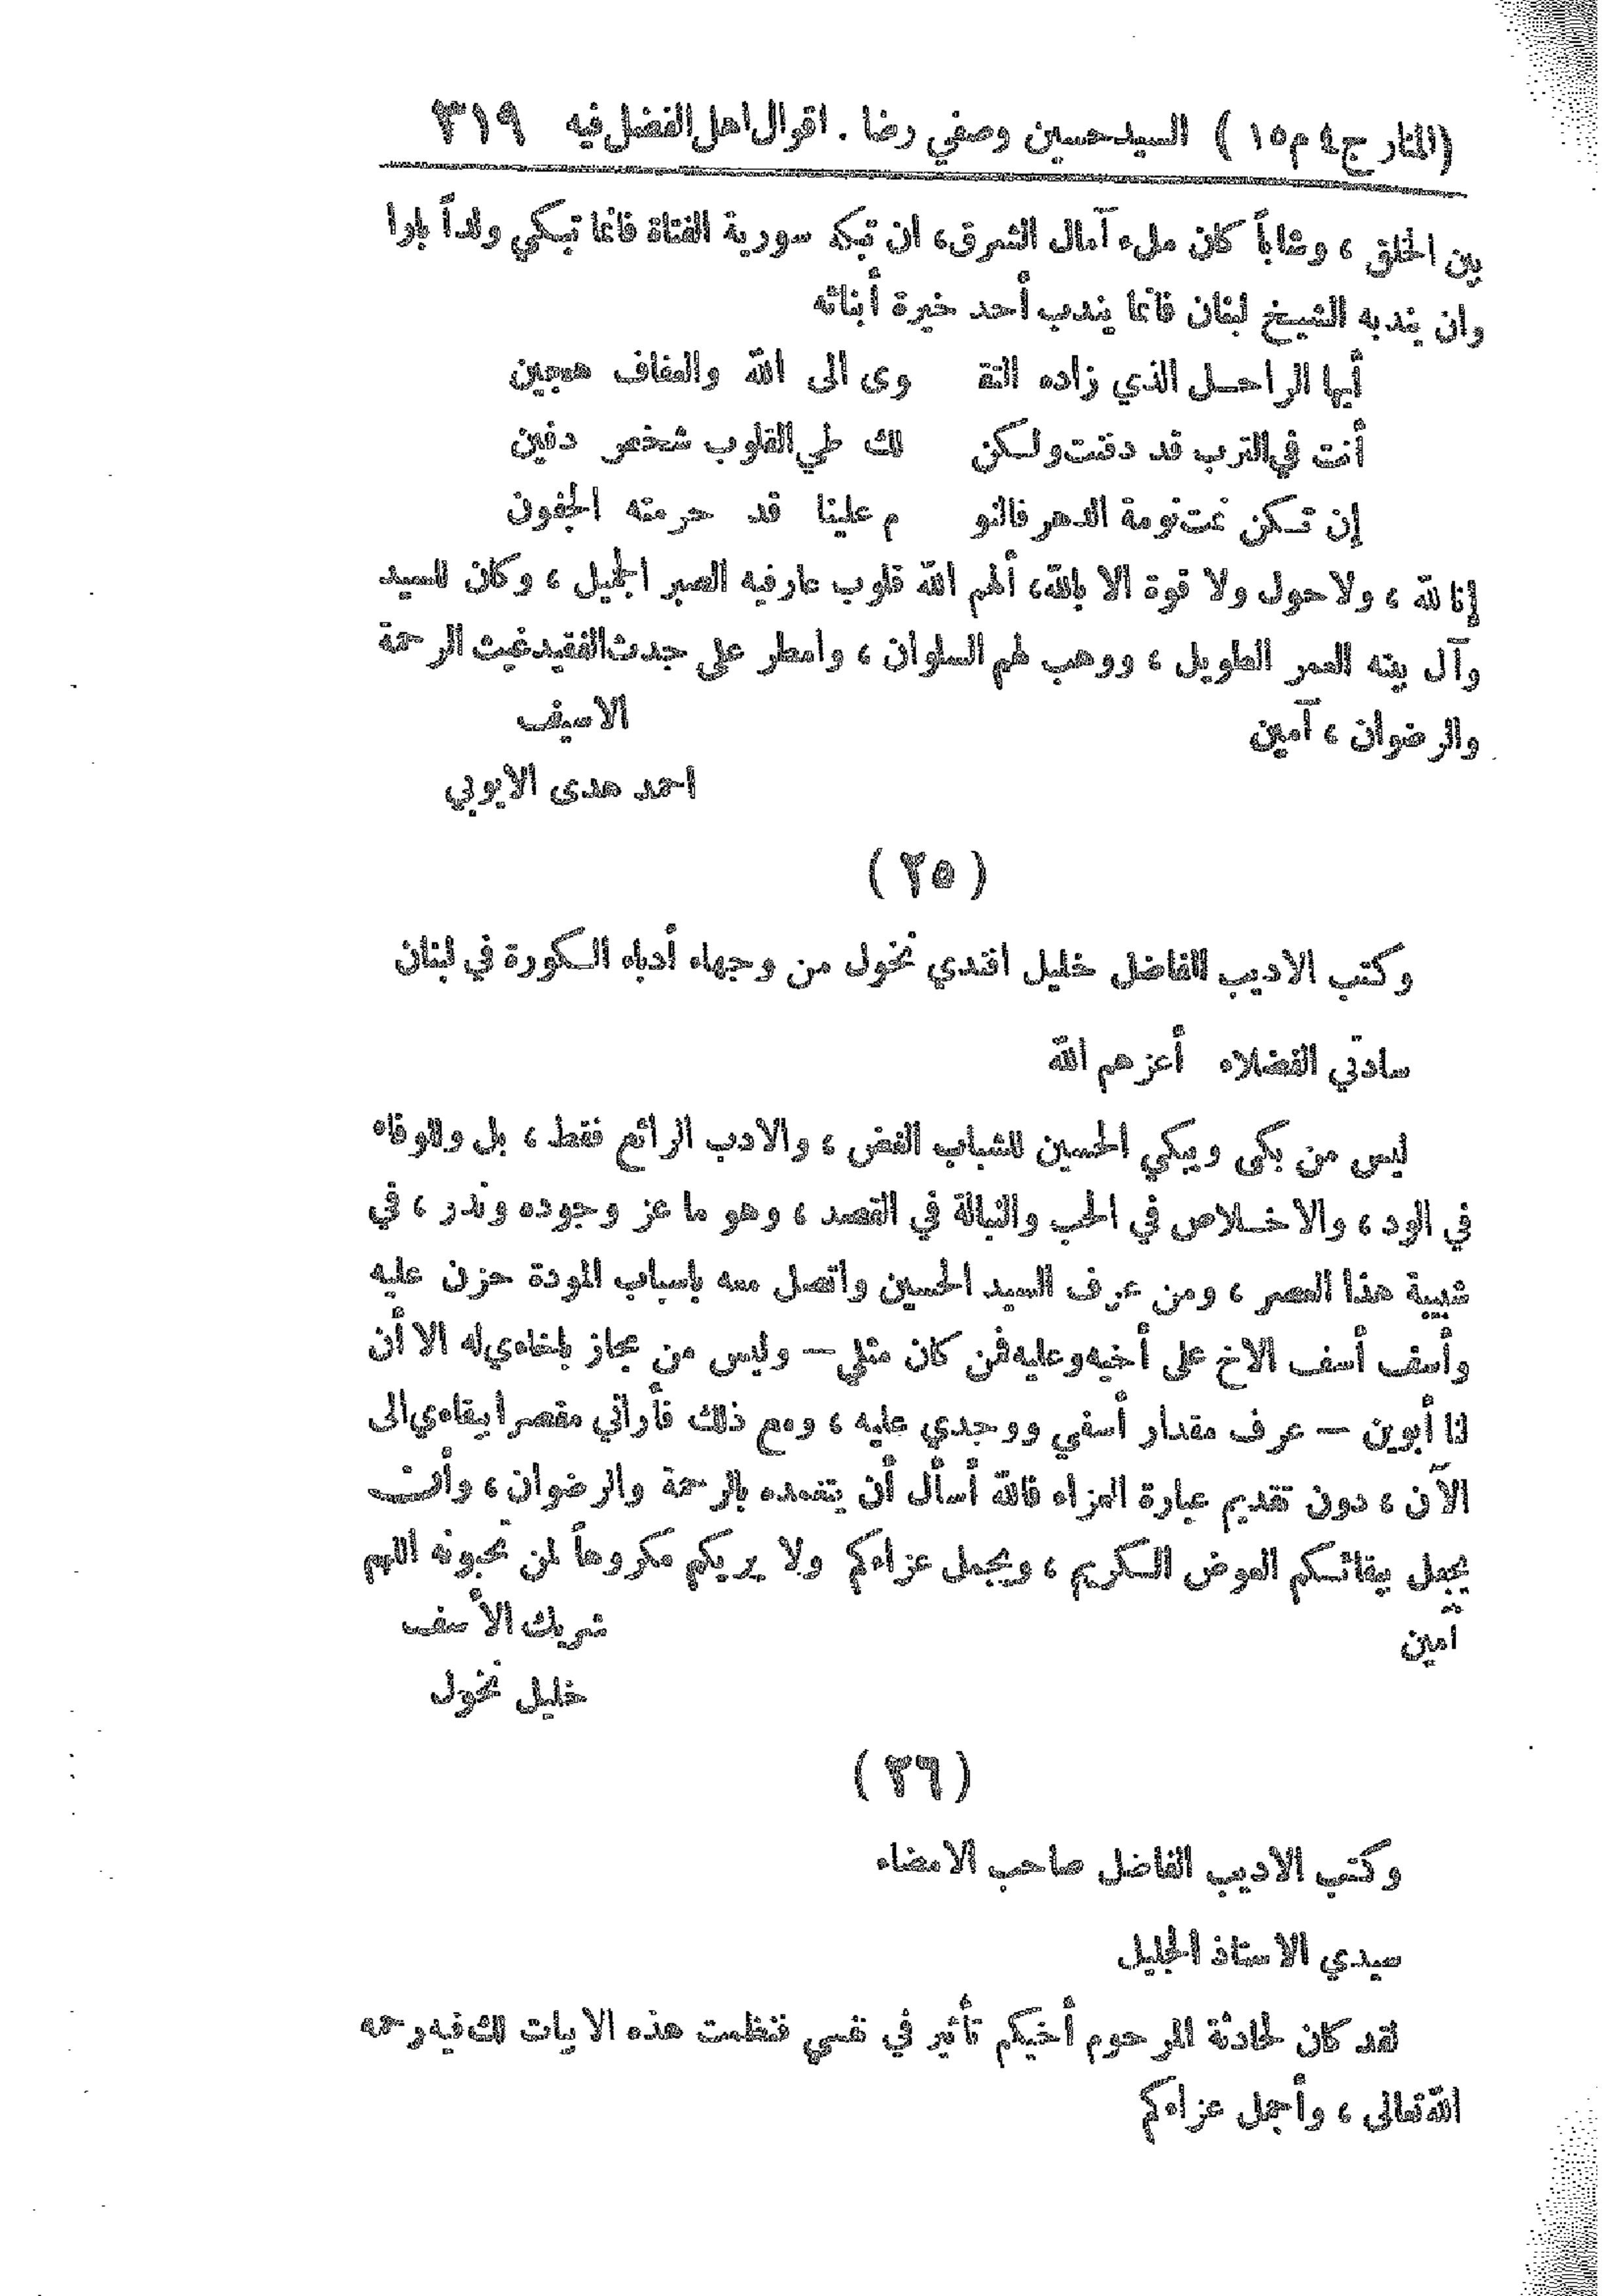 (المنار ج٤ م١٥) السيد حسين وصفي رضا . اقوال اهل الفضل فيه ٣١٩
بين الخلق ، وشاباً كان ملء آمال الشرق، ان تبكه سورية الفتاة فانما تبكي ولداً بارا
وان يندبه الشيخ لبنان فانما يندب أحد خيرة أبنائه
أيها الراحل الذي زاده التقـ وى الى الله والعفاف هجين
أنت في الترب قد دفنت ولكن لك طي القلوب شخص دفين
إن تكن نمت نومة الدهر فالنو م علينا قد حرمته الجفون
إنا لله ، ولا حول ولا قوة الا بالله، ألهم الله قلوب عارفيه الصبر الجميل ، وكان للسيد
وآل بيته العمر الطويل ، ووهب لهم السلوان ، وامطر على جدث الفقيد غيث الرحمة
والرضوان ، آمين الاسيف
احمد هدى الايوبي
( ٢٥ )
وكتب الاديب الفاضل خليل افندي نخول من وجهاء أدباء الكورة في لبنان
سادتي الفضلاء أعزهم الله
ليس من بكى ويبكي الحسين للشباب الغض ، والادب الرائع فقط ، بل وللوفاء
في الود ، والاخلاص في الحب والنبالة في القصد ، وهو ما عز وجوده وندر ، في
شبيبة هذا العصر ، ومن عرف السيد الحسين واتصل معه باسباب المودة حزن عليه
وأسف أسف الاخ على أخيه وعليه فمن كان مثلي — وليس من مجاز باخاءي له الا أن
لنا أبوين — عرف مقدار أسفي ووجدي عليه ، ومع ذلك فأراني مقصرا ببقاءي الى
الآن ، دون تقديم عبارة العزاء فالله أسأل أن يتغمده بالرحمة والرضوان ، وأن
يجعل ببقائكم العوض الكريم ، ويجمل عزاءكم ولا يريكم مكروهاً لمن تحبونه اللهم
آمين شريك الأسف
خليل نخول
( ٢٦ )
وكتب الاديب الفاضل صاحب الامضاء
سيدي الاستاذ الجليل
لقد كان لحادثة المرحوم أخيكم تأثير في نفسي فنظمت هذه الابيات لك فيه رحمه
الله تعالى ، وأجمل عزاءكم